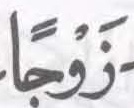 -زَوْجًا-